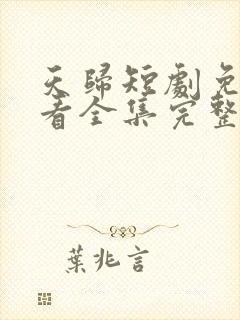 天歸短劇免
看全集完整
葉兆言